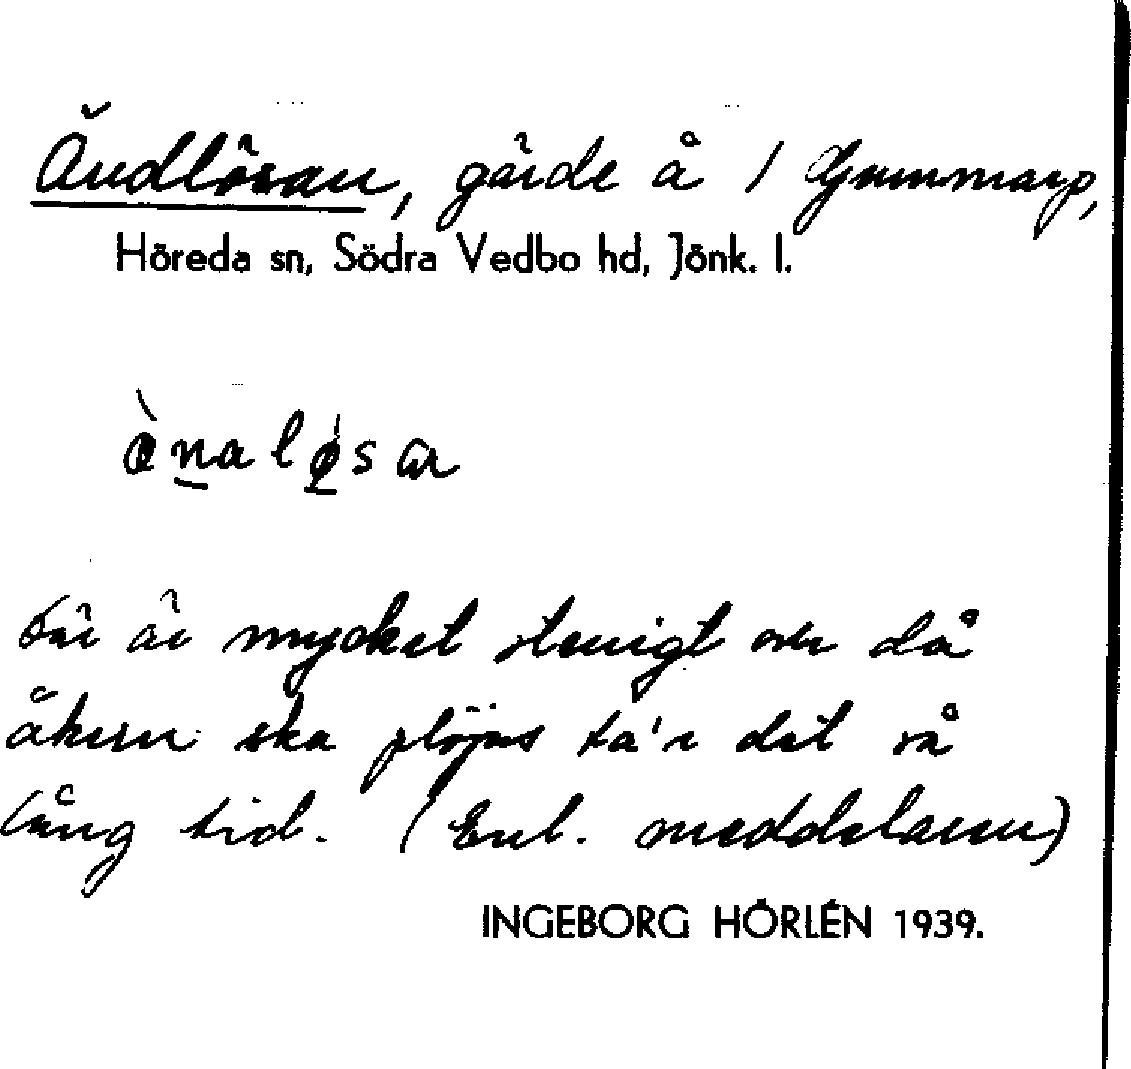 Ändlösan, gärde å 1 Gummarp,
Höreda sn, Södra Vedbo hd, Jönk. l.
där är mycket stenigt och då
åkern ska plöjas ta'r det så
lång tid. (Enl. meddelaren)
INGEBORG HÖRLÉN 1939.